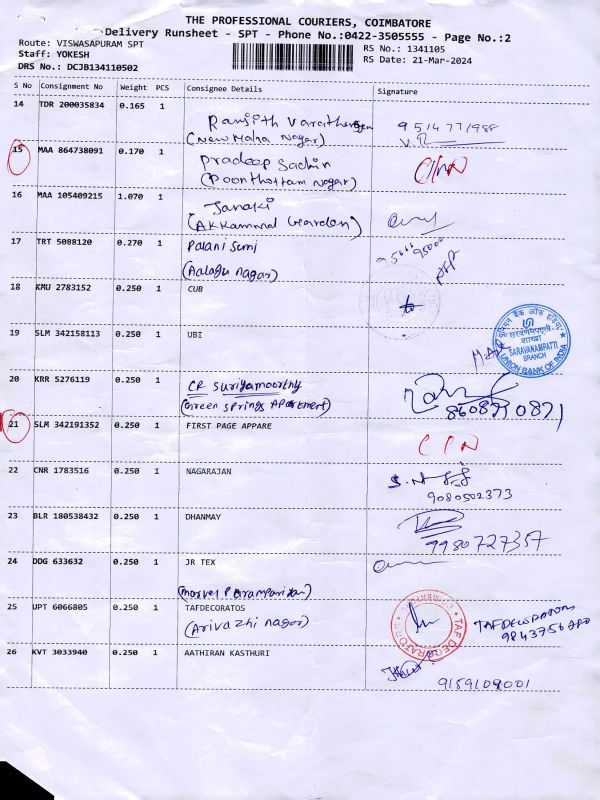 THE PROFESSIONAL COURIERS, COIMBATORE
Delivery Runsheet - SPT - Phone No.:0422-3505555 - Page No.:2
Route: VISWASAPURAM SPT
Staff: YOKESH
DRS No.: DCJB134110502
RS No.: 1341105
RS Date: 21-Mar-2024
S No Consignment No Weight PCS Consignee Details Signature
14 TDR 200035834 0.165 1 Ranjith
(New Maha Nagar)
15 MAA 864738091 0.170 1 Pradeep Sachin
(Poonthottam Nagar)
16 MAA 105409215 1.070 1 Janaki
(Akkammal Gearden)
17 TRT 5088120 0.270 1 Palani
(Aalagu nagar)
18 KMU 2783152 0.250 1 CUB
19 SLM 342158113 0.250 1 UBI
यूनियन बैंक ऑफ इंडिया
SARAVANAMPATTI
BRANCH
UNION BANK OF INDIA
20 KRR 5276119 0.250 1 CR Suriyamoorthy
(Green Springs Apartment)
8608710871
21 SLM 342191352 0.250 1 FIRST PAGE APPARE
22 CNR 1783516 0.250 1 NAGARAJAN
9080502373
23 BLR 180538432 0.250 1 DHANMAY
9980727357
24 DDG 633632 0.250 1 JR TEX
25 UPT 6066805 0.250 1 TAFDECORATOS
(Arivazhi nagar)
TAF DECORATORS
26 KVT 3033940 0.250 1 AATHIRAN KASTHURI
9159109001